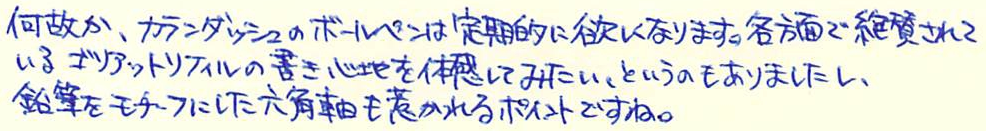 何故か、カランダッシュのボールペンは定期的に欲しくなります。各方面で絶賛されて
いるゴリアットリフィルの書き心地を体感してみたい、というのもありましたし、
鉛筆をモチーフにした六角軸も惹かれるポイントですね。